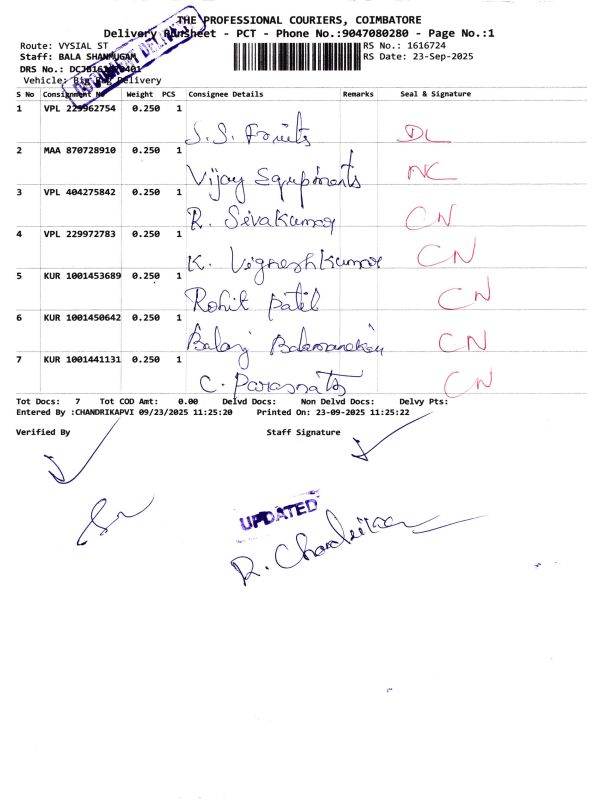 THE PROFESSIONAL COURIERS, COIMBATORE
Delivery Runsheet - PCT - Phone No.:9047080280 - Page No.:1
Route: VYSIAL ST
RS No.: 1616724
Staff: BALA SHANMUGAM
RS Date: 23-Sep-2025
DRS No.:
Vehicle: Big Bag Delivery
DOCUMENT DELIVERY
S No Consignment No Weight PCS Consignee Details Remarks Seal & Signature
1 VPL 229962754 0.250 1 S.S. Fruits DL
2 MAA 870728910 0.250 1 Vijay Equipments NC
3 VPL 404275842 0.250 1 R. Sivakumar CN
4 VPL 229972783 0.250 1 K. Vigneshkumar CN
5 KUR 1001453689 0.250 1 Rohit patil CN
6 KUR 1001450642 0.250 1 Balaj CN
7 KUR 1001441131 0.250 1 C. CN
Tot Docs: 7 Tot COD Amt: 0.00 Delvd Docs: Non Delvd Docs: Delvy Pts:
Entered By :CHANDRIKAPVI 09/23/2025 11:25:20 Printed On: 23-09-2025 11:25:22
Verified By Staff Signature
UPDATED